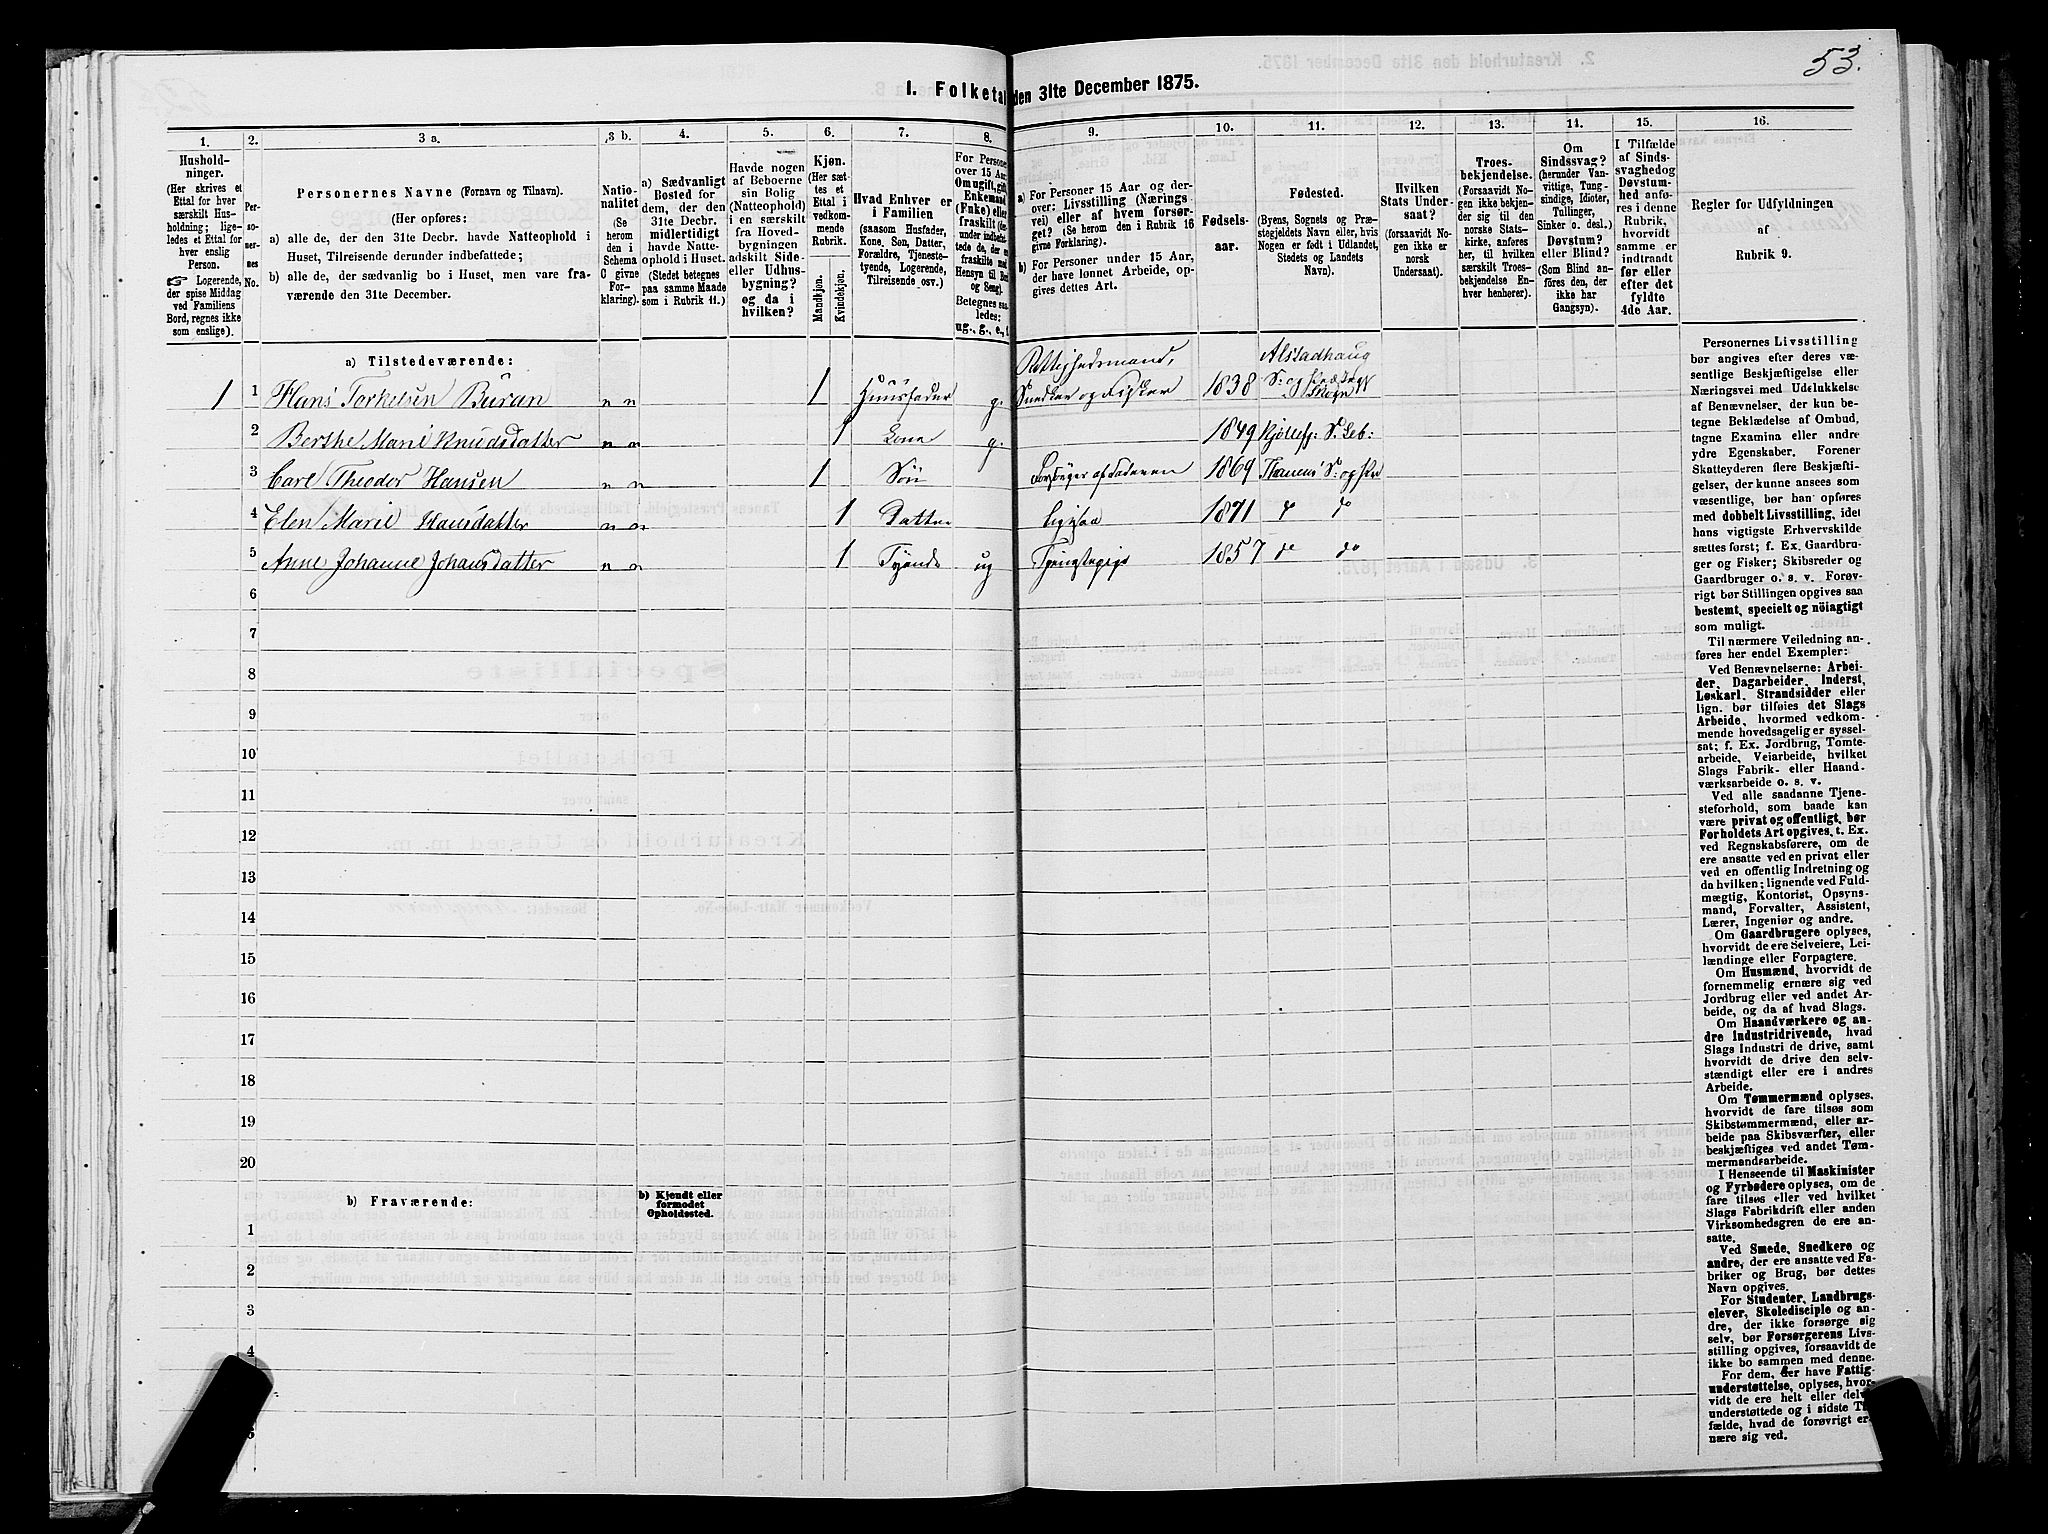 53.
1. Folketal den 31te December 1875.
1.
2.
3 a.
3 b.
4.
5.
6.
7.
8.
9.
10.
11.
12.
13.
14.
15.
16.
Hushold-
ninger.
(Her skrives et
Ettal for hver
særskilt Hus-
holdning; lige-
ledes et Ettal for
hver enslig
Person.
Logerende,
der spise Middag
ved Familiens
Bord, regnes ikke
som enslige).
Per-
so-
ner-
nes
No.
Personernes Navne (Fornavn og Tilnavn).
(Her opføres:
a) alle de, der den 31te Decbr. havde Natteophold i
Huset, Tilreisende derunder indbefattede;
b) alle de, der sædvanlig bo i Huset, men vare fra-
værende den 31te December.
Natio-
nalitet
(Se
herom
den i
Schema
C givne
For-
klaring).
a) Sædvanligt
Bosted for
dem, der den
31te Decbr.
midlertidigt
havde Natte-
ophold i Huset.
(Stedet betegnes
paa samme Maade
som i Rubrik 11.)
Havde nogen
af Beboerne
sin Bolig
(Natteophold)
i en særskilt
fra Hoved-
bygningen
adskilt Side-
eller Udhus-
bygning?
og da i
hvilken?
Kjøn.
(Her sæt-
tes et
Ettal i
vedkom-
mende
Rubrik.
Mandkjøn.
Kvindekjøn.
Hvad Enhver er
i Familien
(saasom Husfader,
Kone, Søn, Datter,
Forældre, Tjeneste-
tyende, Logerende,
Tilreisende osv.)
For Persone
over 15 Aar:
Om ugift, gift
Enkemand
(Enke) eller
fraskilt
Hensyn til Bor
og Seng).
Betegnes saa-
ledes:
ug., g., e., f.
a) For Personer 15 Aar og der-
over: Livsstilling (Nærings
vei) eller af hvem forsør-
get? (Se herom den i Rubrik 16
givne Forklaring).
b) For Personer under 15 Aar,
der have lønnet Arbeide, op-
gives dettes Art.
Fødsels-
aar.
Fødested.
(Byens, Sognets og Præ-
stegjeldets Navn eller, hvis
Nogen er født i Udlandet,
Stedets og Landets
Navn).
Hvilken
Stats Under-
saat?
(forsaavidt No-
gen ikke er
norsk
Undersaat).
Troes-
bekjendelse.
(Forsaavidt No-
gen ikke bekjen-
der sig til den
norske Stats-
kirke, anføres
her, til hvilken
særskilt Troes-
bekjendelse En-
hver henhører).
Om
Sindssvag?
(herunder Van-
vittige, Tung-
sindige, Idioter,
Tullinger,
Sinker o. desl.)
Døvstum?
eller Blind?
(Som Blind an-
føres den, der
ikke har
Gangsyn).
I Tilfælde
af Sinds-
svaghed og
Døvstum-
hed anfø-
res i denne
Rubrik,
hvorvidt
samme er
indtrandt
før eller
efter det
fyldte
4de Aar.
Regler for Udfyldningen
af
Rubrik 9.
a) Tilstedeværende:
1 1 Hans Torkelsen Buran n n 1 Huusfader g. Snedker og Fisker 1838 Alstadhaug
2 Berthe Marie Knudsdatter n n 1 Kone g. 1849
3 Carl Theodor Hansen n n 1 Søn Forsørges af Faderen 1869
4 Elen Marie Hansdatter n n 1 Datter ligesaa 1871 do do
5 Anne Johanne Johansdatter n n 1 Tyende ug Tjenestepige 1857 do do
6
7
8
9
10
11
12
13
14
15
16
17
18
19
20
b) Fraværende:
b) Kjendt eller
formodet
Opholdssted.
1
2
3
4
Personernes Livsstilling
bør angives efter deres væ-
sentlige Beskjæftigelse eller
Næringsvei med Udelukkelse
af Benævnelser, der kun be-
tegne Beklædelse af Ombud,
tagne Examina eller andre
ydre Egenskaber. Forener
Skatteyderen flere Beskjæfti-
gelser, der kunne ansees som
væsentlige, bør han opføres
med dobbelt Livsstilling, idet
hans vigtigste Erhvervskilde
sættes først; f. Ex. Gaardbru-
ger og Fisker; Skibsreder og
Gaardbruger o. s. v. Forøv-
rigt bør Stillingen opgives saa
bestemt, specielt og nöiagtigt
som muligt.
Til nærmere Veiledning an-
føres her endel Exempler:
Ved Benævnelserne: Arbei-
der, Dagarbeider, Inderst,
Løskarl, Strandsidder eller
lign. bør tilføies det Slags
Arbeide, hvormed vedkom-
mende hovedsagelig er syssel-
sat; f. Ex. Jordbrug, Tomte-
arbeide, Veiarbeide, hvilket
Slags Fabrik- eller Haand-
værksarbeide o. s. v.
Ved alle saadanne Tjene-
steforhold, som baade kan
være privat og offentligt, bør
Forholdets Art opgives, t. Ex.
ved Regnskabsførere, om de
ere ansatte ved en privat eller
ved en offentlig Indretning og
da hvilken; lignende ved Fuld-
mægtig, Kontorist, Opsyns-
mand, Forvalter, Assistent,
Lærer, Ingeniør og andre.
Om Gaardbrugere oplyses,
hvorvidt de ere Selveiere, Lei-
lændinge eller Forpagtere.
Om Husmænd, hvorvidt de
fornemmelig ernære sig ved
Jordbrug eller ved andet Ar-
beide, og da af hvad Slags.
Om Haandværkere og an-
dre industridrivende, hvad
Slags Industri de drive, samt
hvorvidt de drive den selv-
stændigt eller ere i andres
Arbeide.
Om Tømmermænd oplyses,
hvorvidt de fare tilsøs som
Skibstømmermænd, eller ar-
beide paa Skibsværfter, eller
beskjæftiges ved andet Tøm-
mermandsarbeide.
I Henseende til Maskinister
og Fyrbødere oplyses, om de
fare tilsøs eller ved hvilket
Slags Fabrikdrift eller anden
Virksomhedsgren de ere an-
satte.
Ved Smede, Snedkere og
andre, der ere ansatte ved Fa-
briker og Brug, bør dettes
Navn opgives.
For Studenter, Landbrugs-
elever, Skoledisciple og an-
dre, der ikke forsørge sig
selv, bør Forsørgerens Livs-
stilling opgives, forsaavidt de
ikke bo sammen med denne.
For dem, der have Fattig-
understøttelse, oplyses, hvor-
vidt de ere helt eller delvis
understøttede og i sidste Til-
fælde, hvad de forøvrigt er-
nære sig ved.